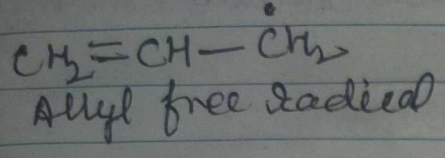 CH₂=CH–ĊH₂
Allyl free radical